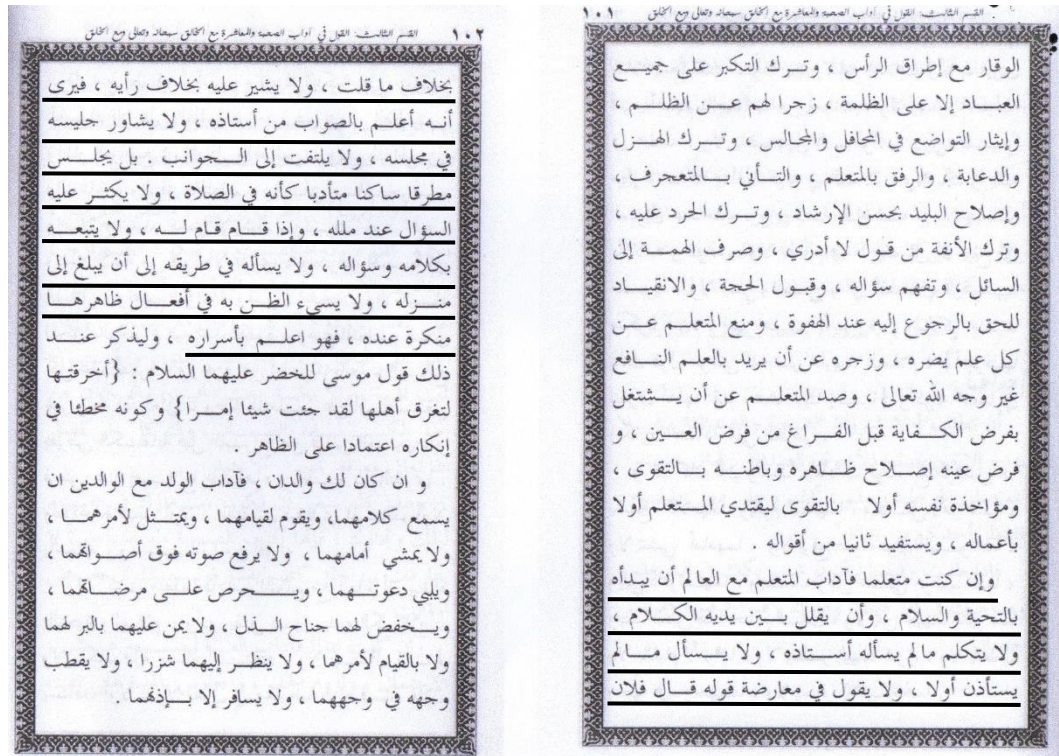 القسم الثالث: القول في آداب الصحبة والمعاشرة مع الخالق سبحانه وتعالى ومع الخلق ١٠١
الوقار مع إطراق الرأس ، وتــرك التكبر على جميــع
العبــاد إلا على الظلمة ، زجرا لهم عــن الظلــم ،
وإيثار التواضع في المحافل والمجالس ، وتــرك الهــزل
والدعابة ، والرفق بالمتعلم ، والتــأني بــالمتعجرف ،
وإصلاح البليد بحسن الإرشاد ، وتــرك الحرد عليه ،
وترك الأنفة من قــول لا أدري ، وصرف الهمــة إلى
السائل ، وتفهم سؤاله ، وقبــول الحجة ، والانقيــاد
للحق بالرجوع إليه عند الهفوة ، ومنع المتعلــم عــن
كل علم يضره ، وزجره عن أن يريد بالعلم النــافع
غير وجه الله تعالى ، وصد المتعلــم عن أن يــشتغل
بفرض الكــفاية قبل الفــراغ من فرض العــين ، و
فرض عينه إصــلاح ظــاهره وباطنــه بــالتقوى ،
ومؤاخذة نفسه أولا بالتقوى ليقتدي المــتعلم أولا
بأعماله ، ويستفيد ثانيا من أقواله .
وإن كنت متعلما فآداب المتعلم مع العالم أن يبــدأه
بالتحية والسلام ، وأن يقلل بــين يديه الكــلام ،
ولا يتكلم مالم يسأله أســتاذه ، ولا يــسأل مــالم
يستأذن أولا ، ولا يقول في معارضة قوله قــال فلان
١٠٢ القسم الثالث: القول في آداب الصحبة والمعاشرة مع الخالق سبحانه وتعالى ومع الخلق
بخلاف ما قلت ، ولا يشير عليه بخلاف رأيه ، فيرى
أنــه أعلــم بالصواب من أستاذه ، ولا يشاور جليسه
في مجلسه ، ولا يلتفت إلى الــجوانب . بل يجلــس
مطرقا ساكنا متأدبا كأنه في الصلاة ، ولا يكثــر عليه
السؤال عند ملله ، وإذا قــام قام لــه ، ولا يتبعــه
بكلامه وسؤاله ، ولا يسأله في طريقه إلى أن يبلغ إلى
منــزله ، ولا يسيء الظــن به في أفعــال ظاهرهــا
منكرة عنده ، فهو اعلــم بأسراره ، وليذكر عنــد
ذلك قول موسى للخضر عليهما السلام : {أخرقتــها
لتغرق أهلها لقد جئت شيئا إمــرا} وكونه مخطئا في
إنكاره اعتمادا على الظاهر .
و ان كان لك والدان ، فآداب الولد مع الوالدين ان
يسمع كلامهما، ويقوم لقيامهما ، ويمتــثل لأمرهمــا ،
ولا يمشي أمامهما ، ولا يرفع صوته فوق أصــواتهما ،
ويلبي دعوتــهما ، ويــحرص علــى مرضــاتهما ،
ويــخفض لهما جناح الــذل ، ولا يمن عليهما بالبر لهما
ولا بالقيام لأمرهما ، ولا ينظــر إليهما شزرا ، ولا يقطب
وجهه في وجههما ، ولا يسافر إلا بــإذنهما .